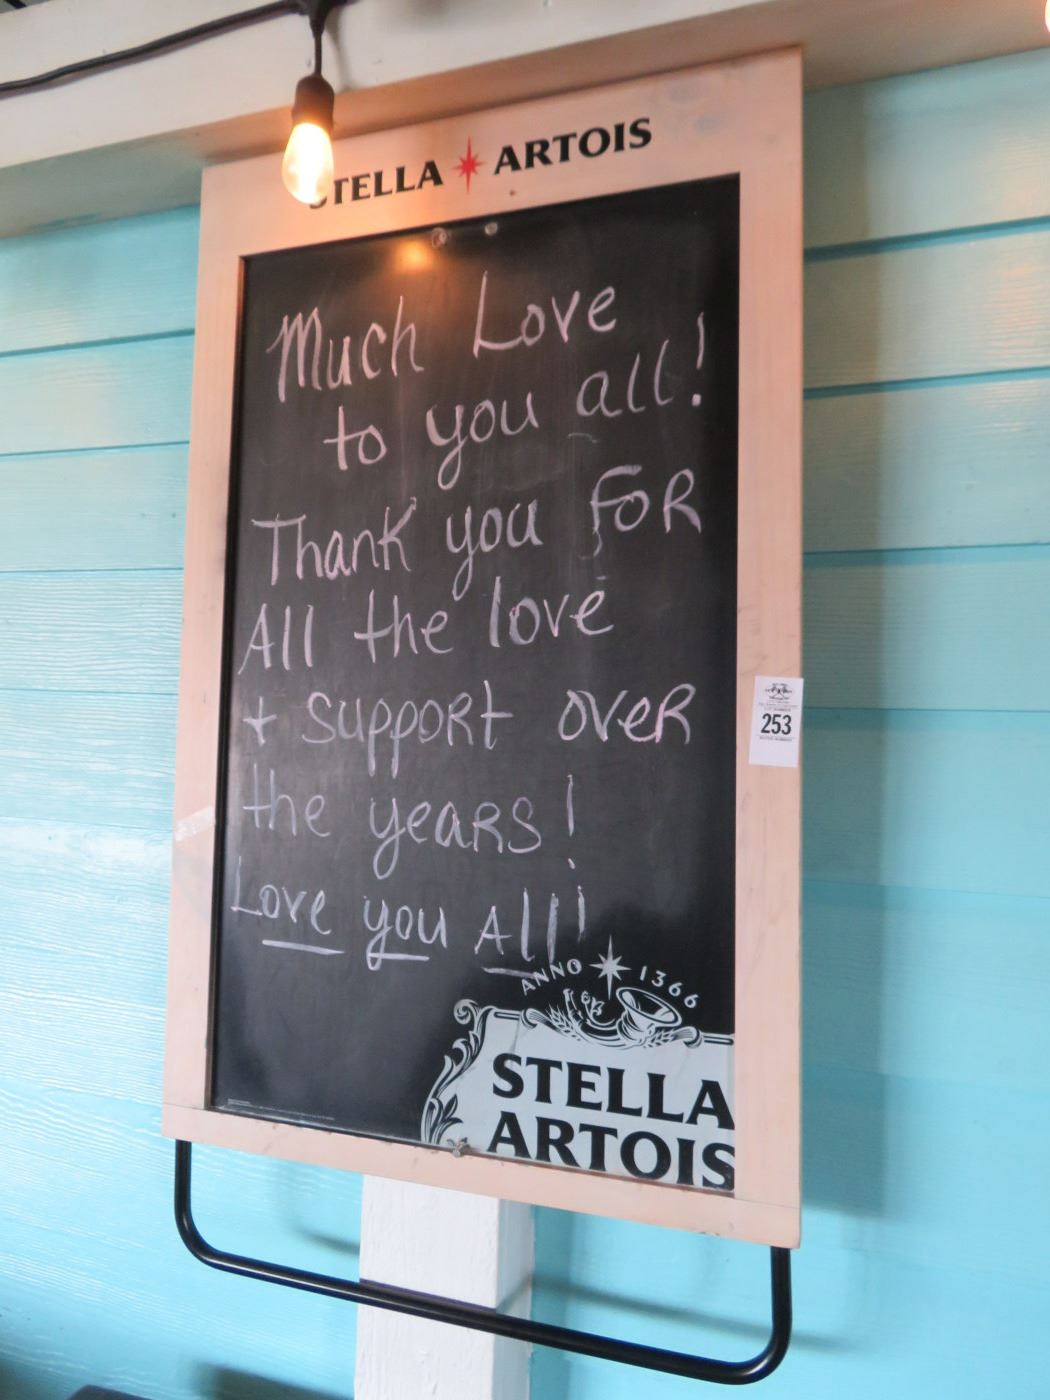 STELLA ARTOIS
Much Love
to you all!
Thank you FOR
All the love
+ Support over
the years!
Love you All!
253
ANNO 1366
STELLA
ARTOIS